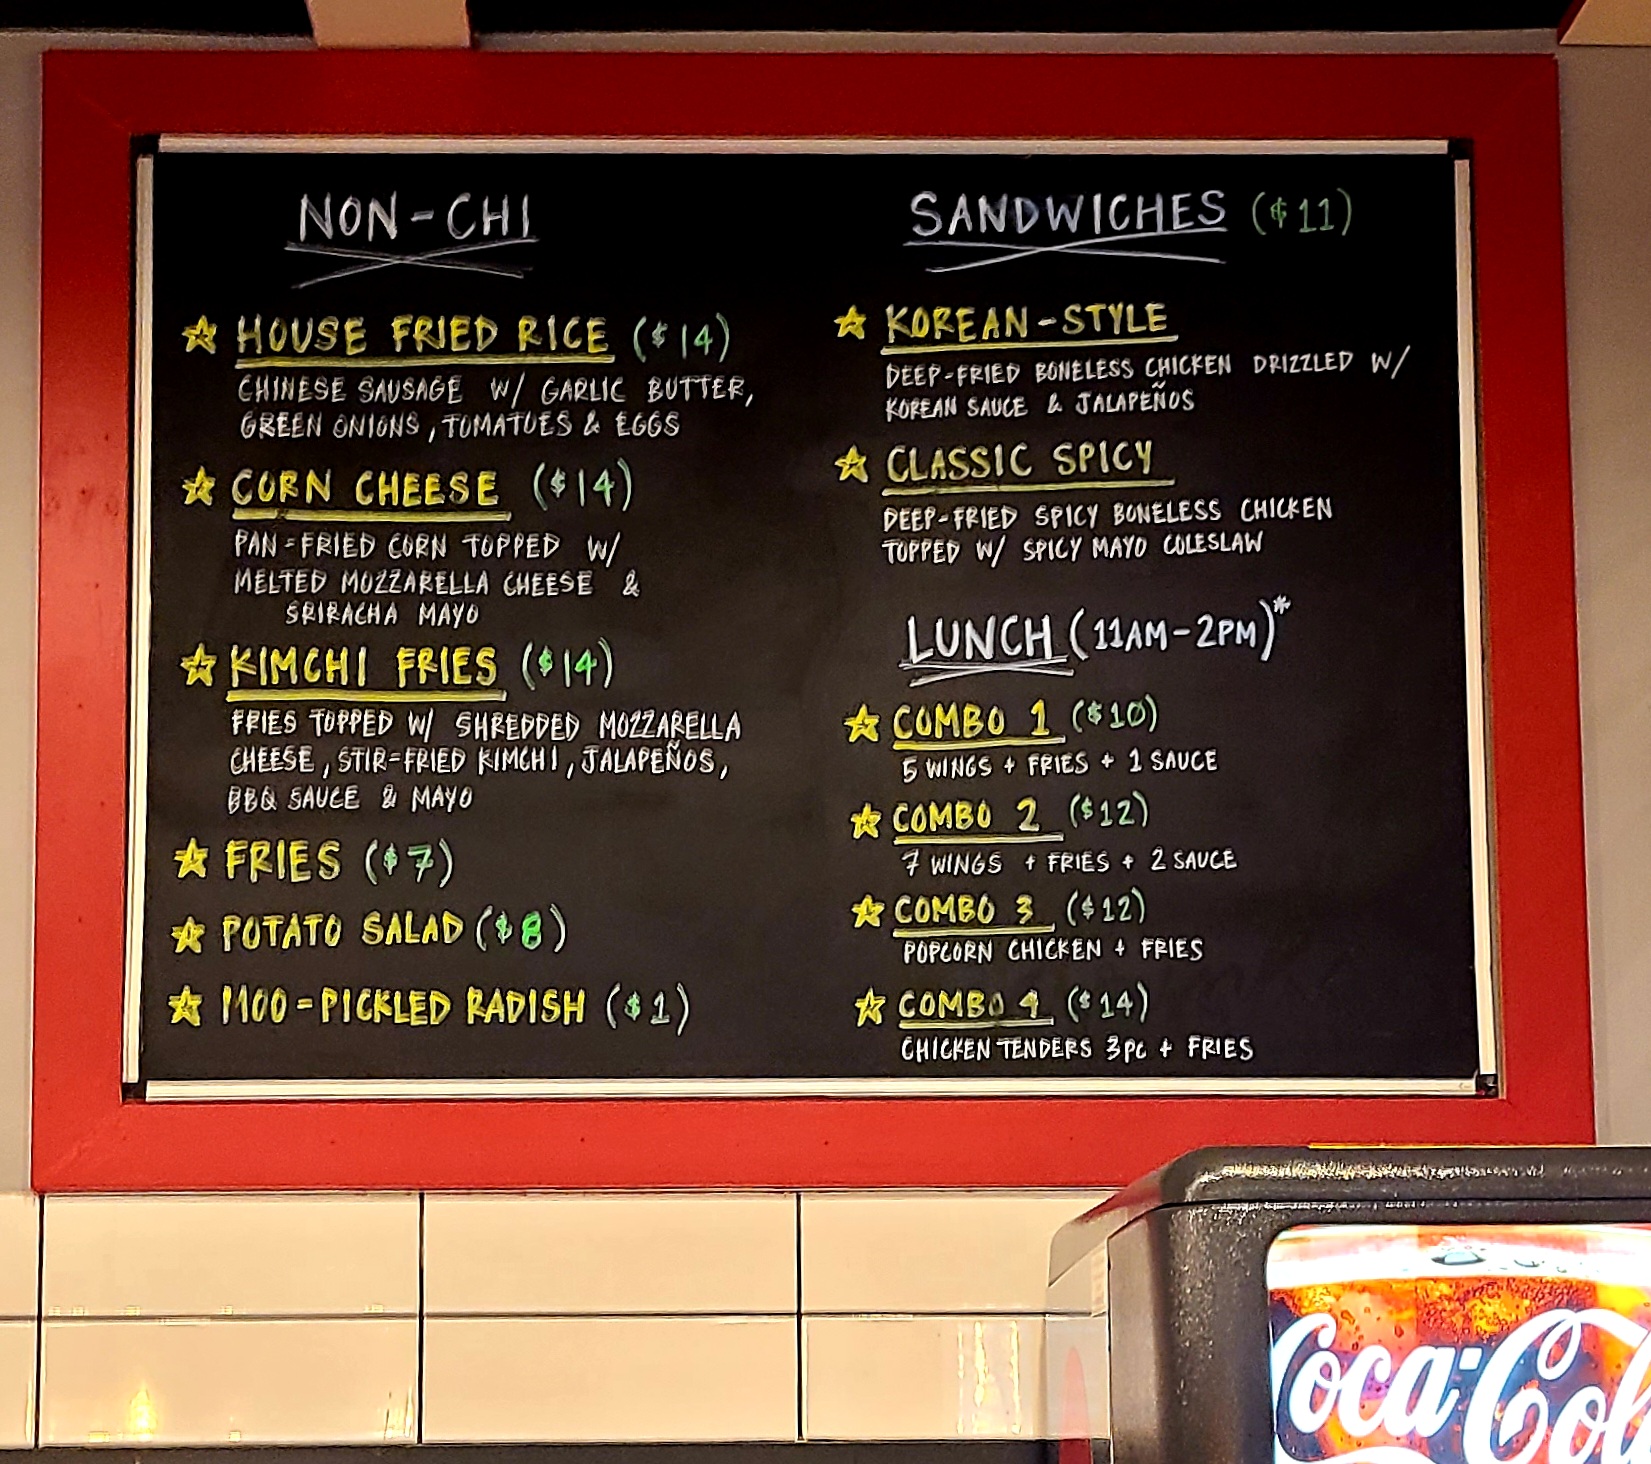 NON-CHI
☆ HOUSE FRIED RICE ($14)
CHINESE SAUSAGE W/ GARLIC BUTTER,
GREEN ONIONS, TOMATOES & EGGS
☆ CORN CHEESE ($14)
PAN-FRIED CORN TOPPED W/
MELTED MOZZARELLA CHEESE &
SRIRACHA MAYO
☆ KIMCHI FRIES ($14)
FRIES TOPPED W/ SHREDDED MOZZARELLA
CHEESE, STIR-FRIED KIMCHI, JALAPEÑOS,
BBQ SAUCE & MAYO
☆ FRIES ($7)
☆ POTATO SALAD ($8)
☆ MOO-PICKLED RADISH ($1)
SANDWICHES ($11)
☆ KOREAN-STYLE
DEEP-FRIED BONELESS CHICKEN DRIZZLED W/
KOREAN SAUCE & JALAPEÑOS
☆ CLASSIC SPICY
DEEP-FRIED SPICY BONELESS CHICKEN
TOPPED W/ SPICY MAYO COLESLAW
LUNCH (11AM-2PM)*
☆ COMBO 1 ($10)
5 WINGS + FRIES + 1 SAUCE
☆ COMBO 2 ($12)
7 WINGS + FRIES + 2 SAUCE
☆ COMBO 3 ($12)
POPCORN CHICKEN + FRIES
☆ COMBO 4 ($14)
CHICKEN TENDERS 3PC + FRIES
Coca-Col